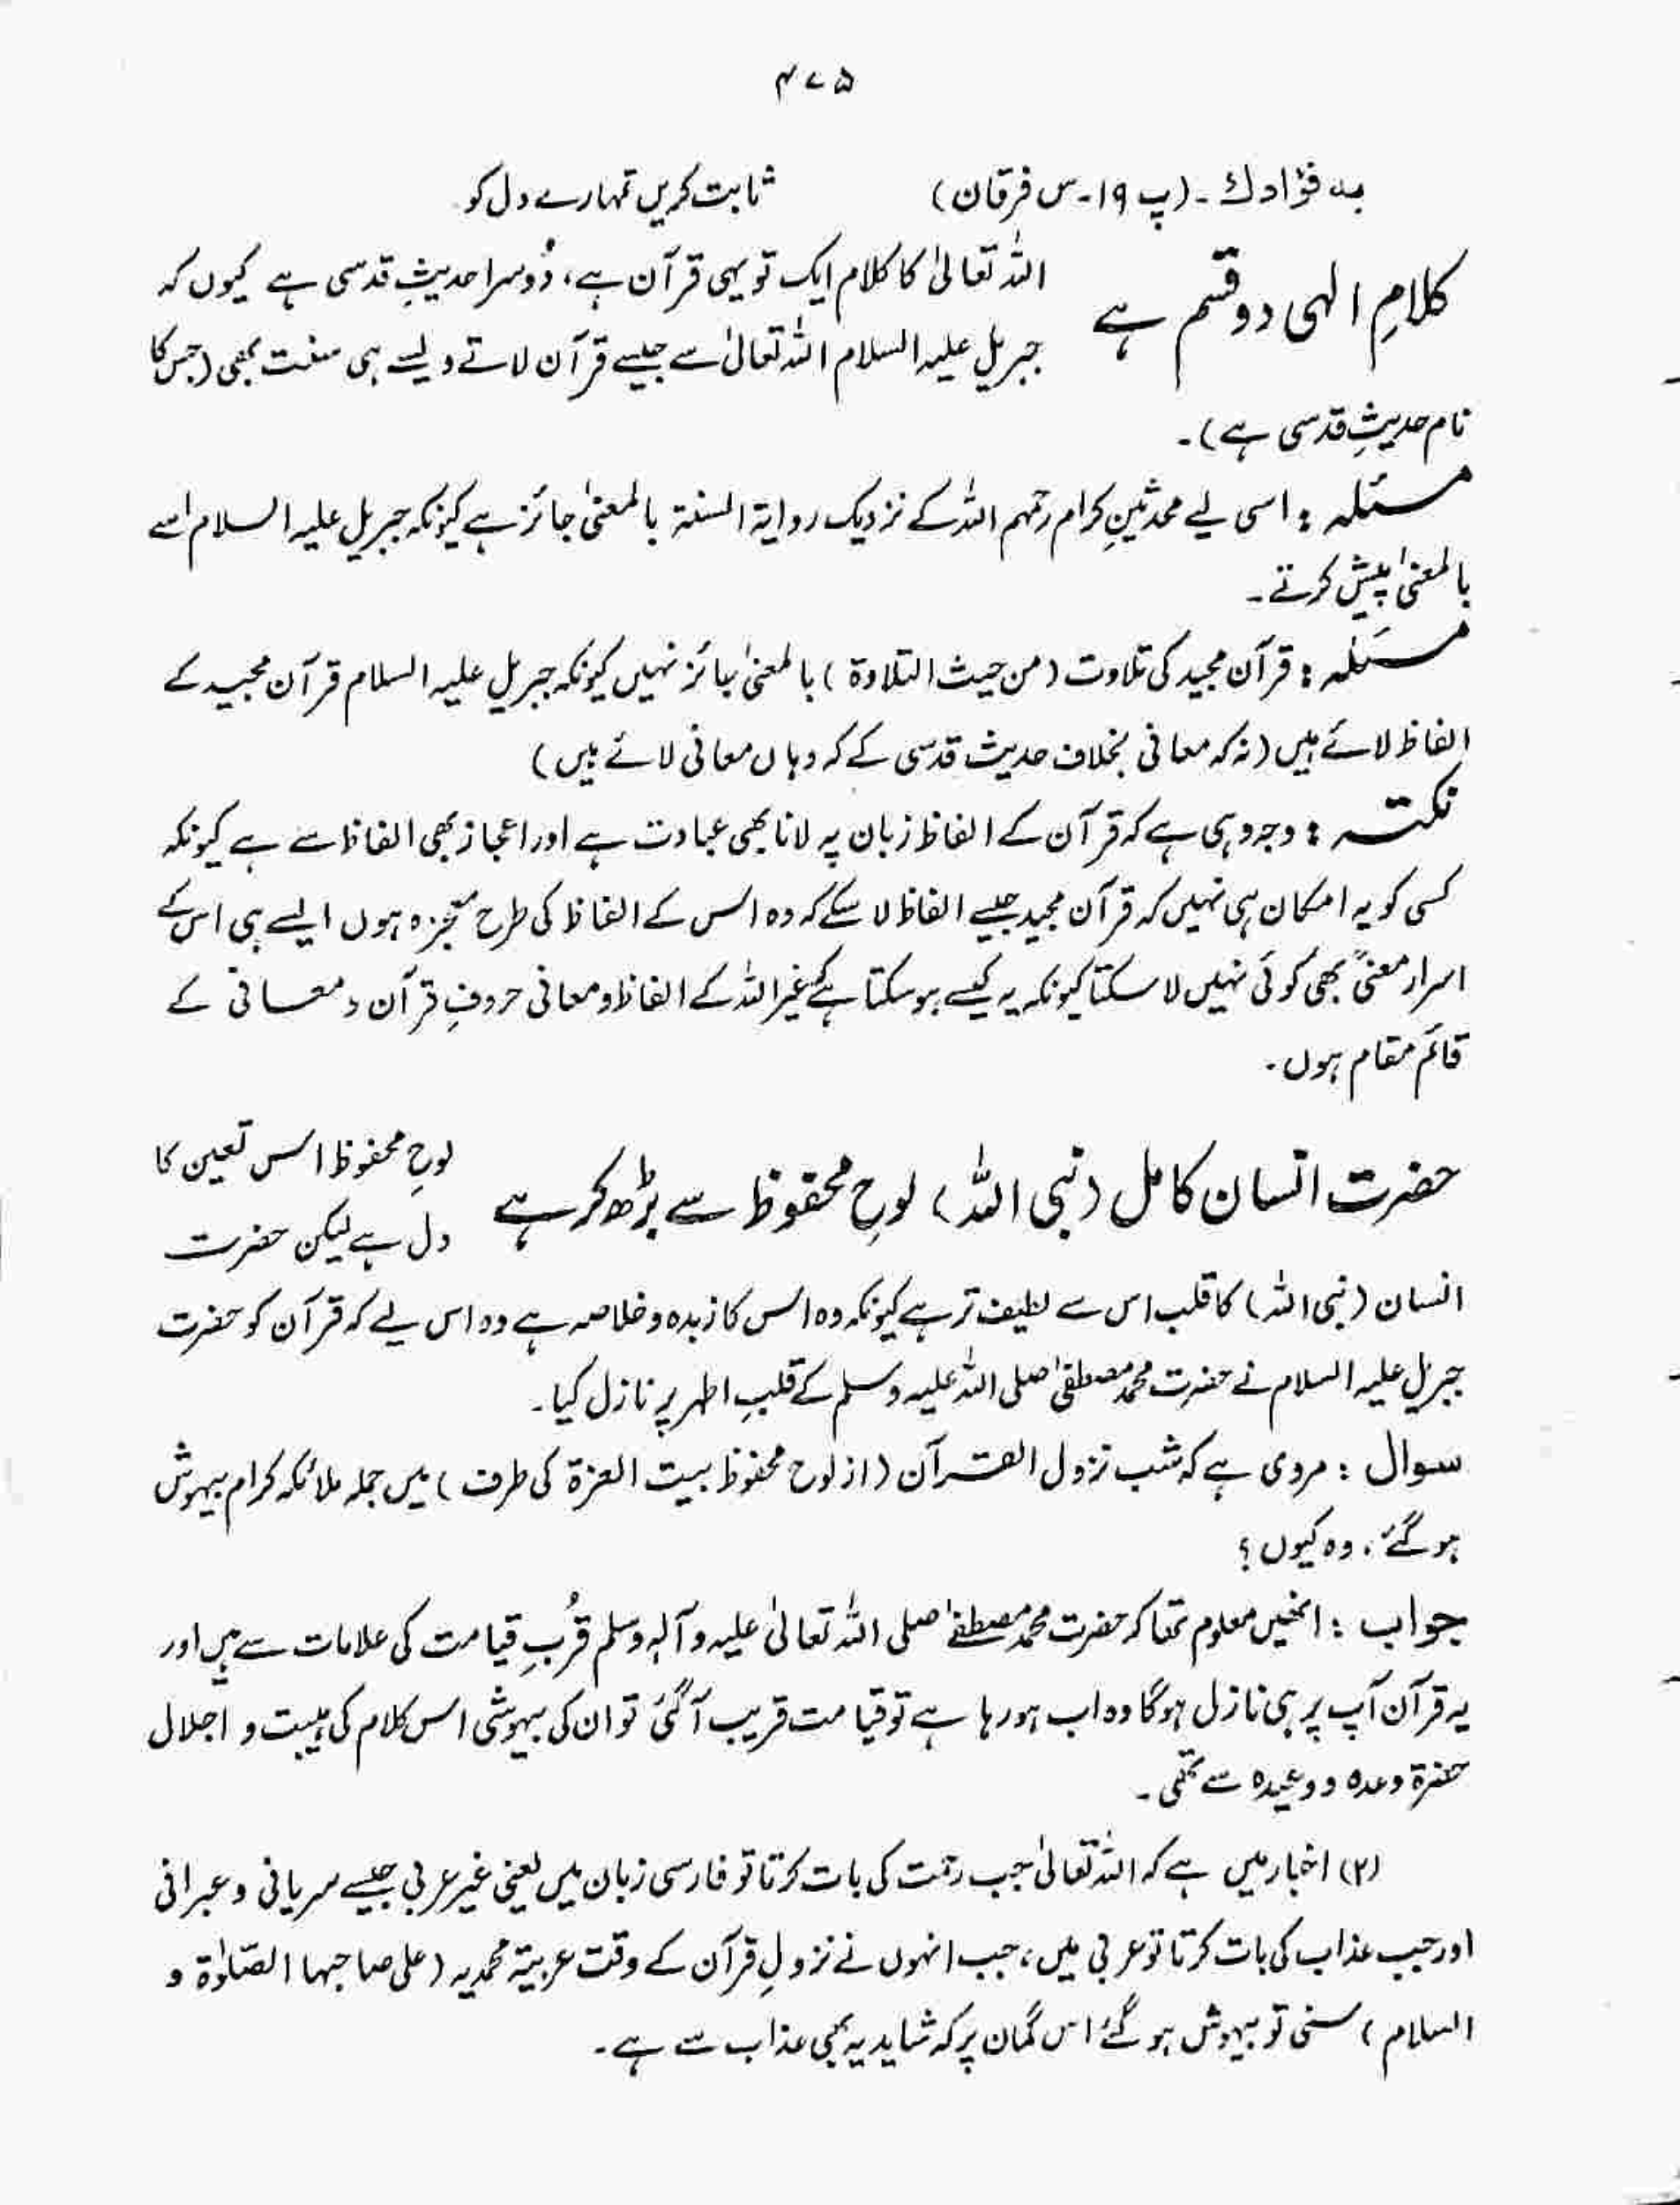 ۴۷۵
بہ فؤادك ۔ (پ ۱۹ ۔ س فرقان) ثابت کریں تمہارے دل کو۔
کلامِ الٰہی دو قسم ہے
اللہ تعالیٰ کا کلام ایک تو یہی قرآن ہے، دُوسرا حدیثِ قدسی ہے کیوں کہ
جبریل علیہ السلام اللہ تعالیٰ سے جیسے قرآن لاتے ویسے ہی سنت بھی (جس کا
نام حدیثِ قدسی ہے)۔
مسئلہ : اسی لیے محدثینِ کرام رحمہم اللہ کے نزدیک روایۃ السنۃ بالمعنیٰ جائز ہے کیونکہ جبریل علیہ السلام اسے
بالمعنیٰ پیش کرتے ۔
مسئلہ : قرآن مجید کی تلاوت (من حیث التلاوۃ) بالمعنیٰ جائز نہیں کیونکہ جبریل علیہ السلام قرآن مجید کے
الفاظ لائے ہیں (نہ کہ معانی بخلاف حدیث قدسی کے کہ وہاں معانی لائے ہیں)
نکتہ : وجہ وہی ہے کہ قرآن کے الفاظ زبان پہ لانا بھی عبادت ہے اور اعجاز بھی الفاظ سے ہے کیونکہ
کسی کو یہ امکان ہی نہیں کہ قرآن مجید جیسے الفاظ لا سکے کہ وہ اس کے الفاظ کی طرح معجزہ ہوں ایسے ہی اس کے
اسرار معنیً بھی کوئی نہیں لا سکتا کیونکہ یہ کیسے ہو سکتا ہے کہ غیر اللہ کے الفاظ و معانی حروفِ قرآن و معانی کے
قائم مقام ہوں ۔
حضرت انسان کامل (نبی اللہ) لوحِ محفوظ سے بڑھ کر ہے
لوحِ محفوظ اس تعین کا
دل ہے لیکن حضرت
انسان (نبی اللہ) کا قلب اس سے لطیف تر ہے کیونکہ وہ اس کا زبدہ و خلاصہ ہے وہ اس لیے کہ قرآن کو حضرت
جبریل علیہ السلام نے حضرت محمد مصطفیٰ صلی اللہ علیہ وسلم کے قلبِ اطہر پر نازل کیا ۔
سوال : مروی ہے کہ شب نزول القرآن (از لوح محفوظ بیت العزۃ کی طرف) میں جملہ ملائکہ کرام بیہوش
ہو گئے ، وہ کیوں ؟
جواب : انھیں معلوم تھا کہ حضرت محمد مصطفےٰ صلی اللہ تعالیٰ علیہ وآلہٖ وسلم قُربِ قیامت کی علامات سے ہیں اور
یہ قرآن آپ پر ہی نازل ہوگا وہ اب ہو رہا ہے تو قیامت قریب آ گئی تو ان کی بیہوشی اس کلام کی ہیبت و اجلال
حضرۃ وعدہ و وعیدہ سے تھی ۔
(۲) اخبار میں ہے کہ اللہ تعالیٰ جب رحمت کی بات کرتا تو فارسی زبان میں یعنی غیر عربی جیسے سریانی و عبرانی
اور جب عذاب کی بات کرتا تو عربی میں ، جب انہوں نے نزولِ قرآن کے وقت عربیۃ محمدیہ (علی صاحبہا الصّلوٰۃ و
السلام) سنی تو بیہوش ہو گئے اس گمان پر کہ شاید یہ بھی عذاب سے ہے ۔